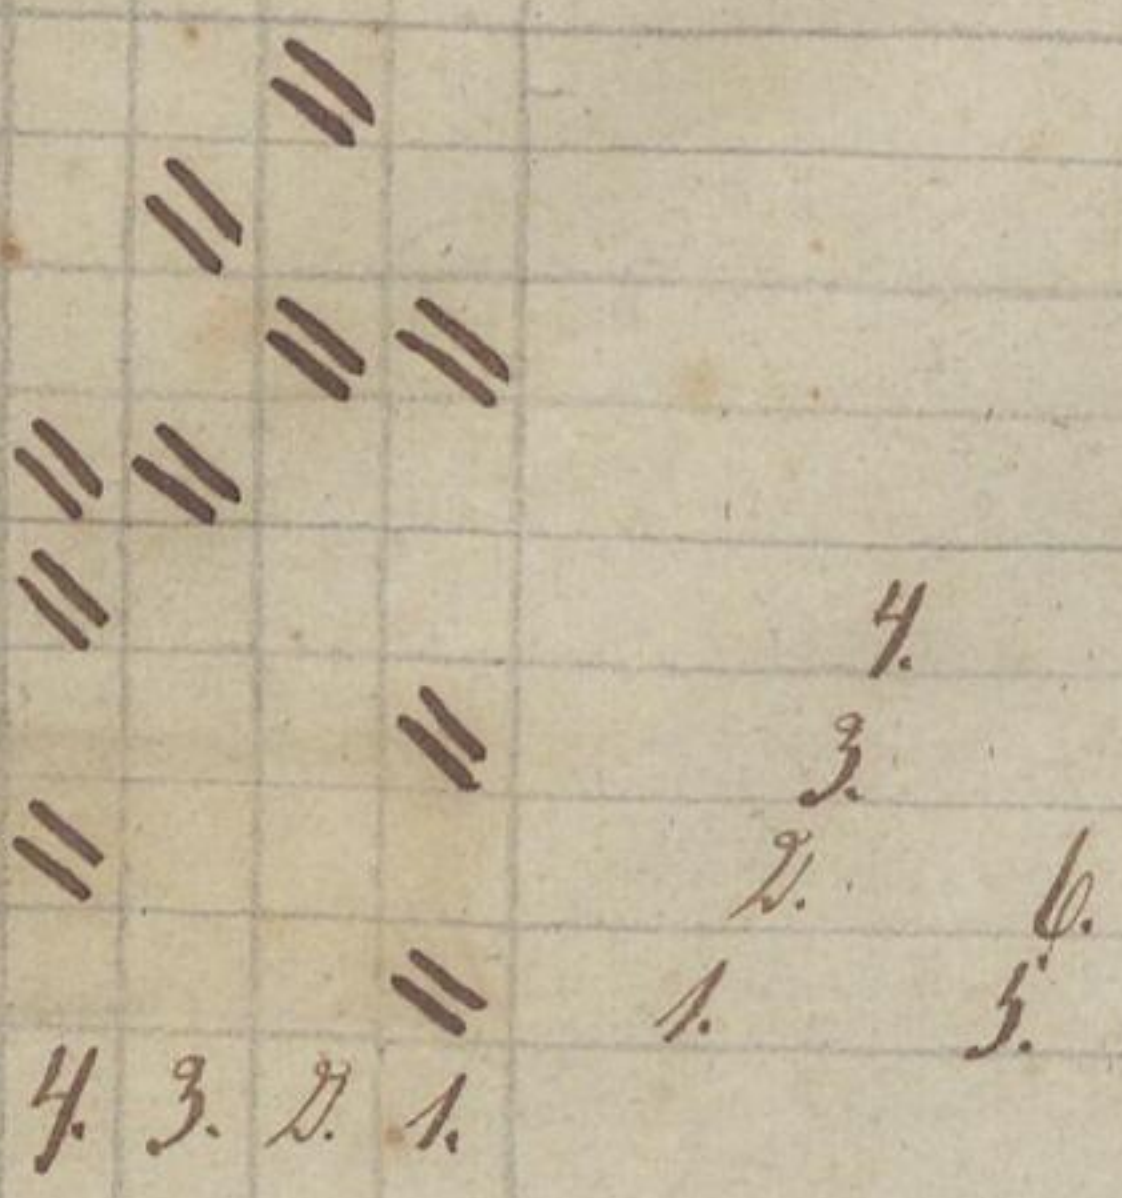 4.
3.
2. 6.
1. 5.
4. 3. 2. 1.